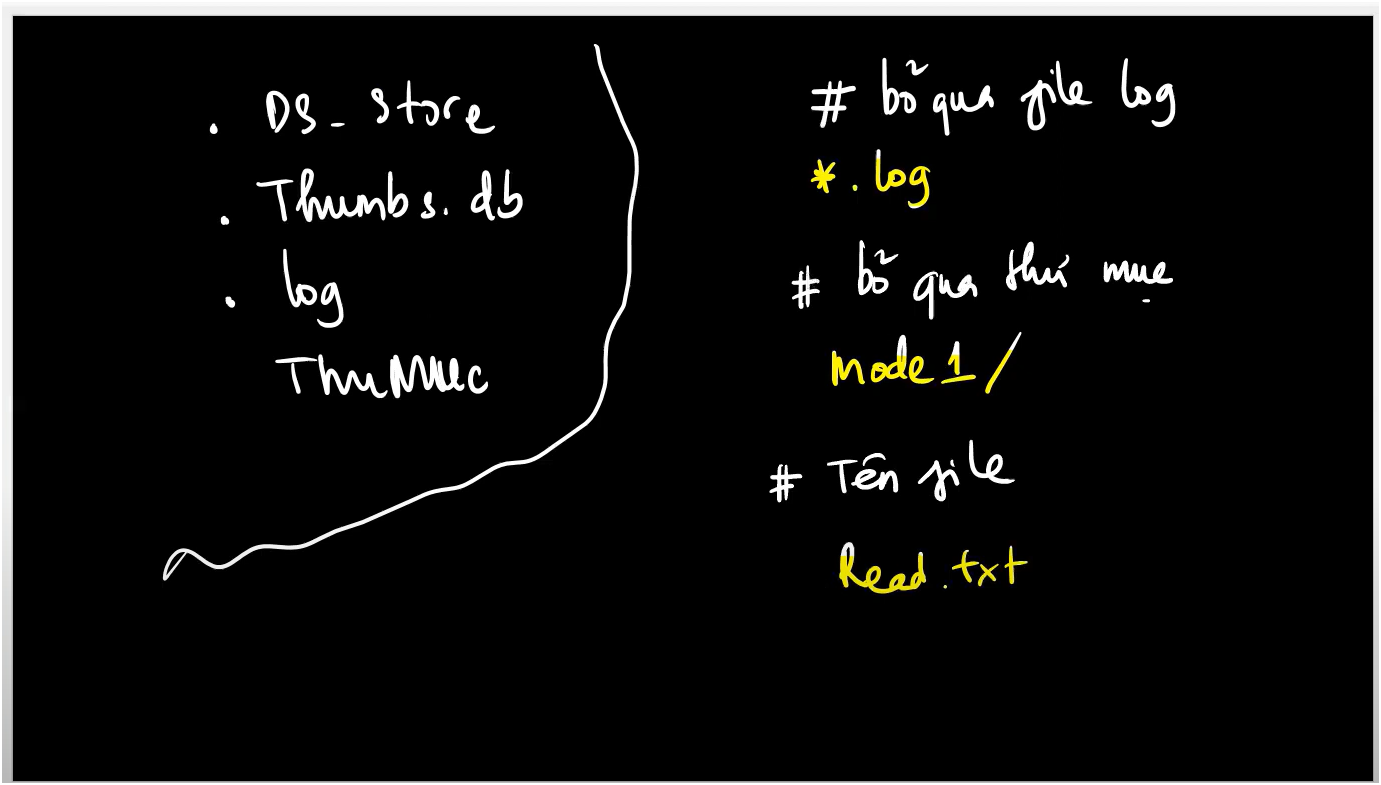 . DS_ Store
. Thumbs.db
. log
ThuMuc
# bỏ qua file log
*.log
# bỏ qua thư mục
mode1/
# Tên file
Read.txt